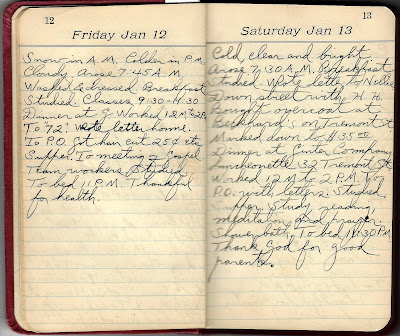 12
Friday Jan 12
Snow in A.M. Colder in P.M.
Cloudy Arose 7:45 A.M.
Washed & dressed Breakfast
Studied Classes 9:30-11:30
Dinner at Worked 12
To 72. Wrote letter home.
To P.O. Got hair cut 25¢ etc
Supper. To meeting of Gospel
Team workers Studied
To bed 11 P.M. Thankful
for health.
13
Saturday Jan 13
Cold, clear and bright
Arose 7:30 A.M. Breakfast
Studied. Wrote letter to Nellie
Down street with H.H.
Bought overcoat at
on Tremont St.
Marked down to $35.00
Dinner at
Luncheonette 32 Tremont St.
Worked 12 M to 2 P.M. To
P.O. with letters. Studied
Supper. Study reading,
meditation and prayer.
Shower bath. To bed 11:30 P.M.
Thank God for good
parents.